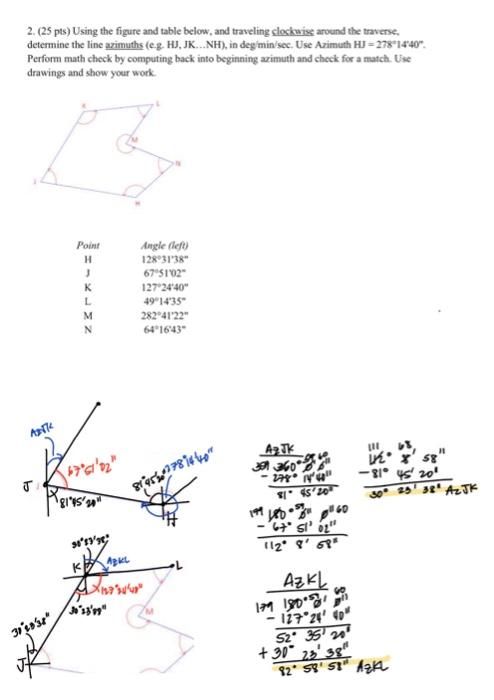 2. (25 pts) Using the figure and table below, and traveling clockwise around the traverse,
determine the line azimuths (e.g. HJ, JK…NH), in deg/min/sec. Use Azimuth HJ = 278°14'40".
Perform math check by computing back into beginning azimuth and check for a match. Use
drawings and show your work.
K
L
M
N
J
H
Point Angle (left)
H 128°31'38"
J 67°51'02"
K 127°24'40"
L 49°14'35"
M 282°41'22"
N 64°16'43"
AzJK
67°51'02"
J
81°45'20"
81°45'20"
278°14'40"
H
30°23'38"
K
AzKL
L
127°24'40"
M
30°23'38"
J
AzJK
360°
- 278° 14' 40"
81° 45' 20"
180°
- 67° 51' 02"
112° 8' 58"
112° 8' 58"
- 81° 45' 20"
30° 23' 38" AzJK
AzKL
180°
- 127° 24' 40"
52° 35' 20"
+ 30° 23' 38"
82° 58' 58" AzKL